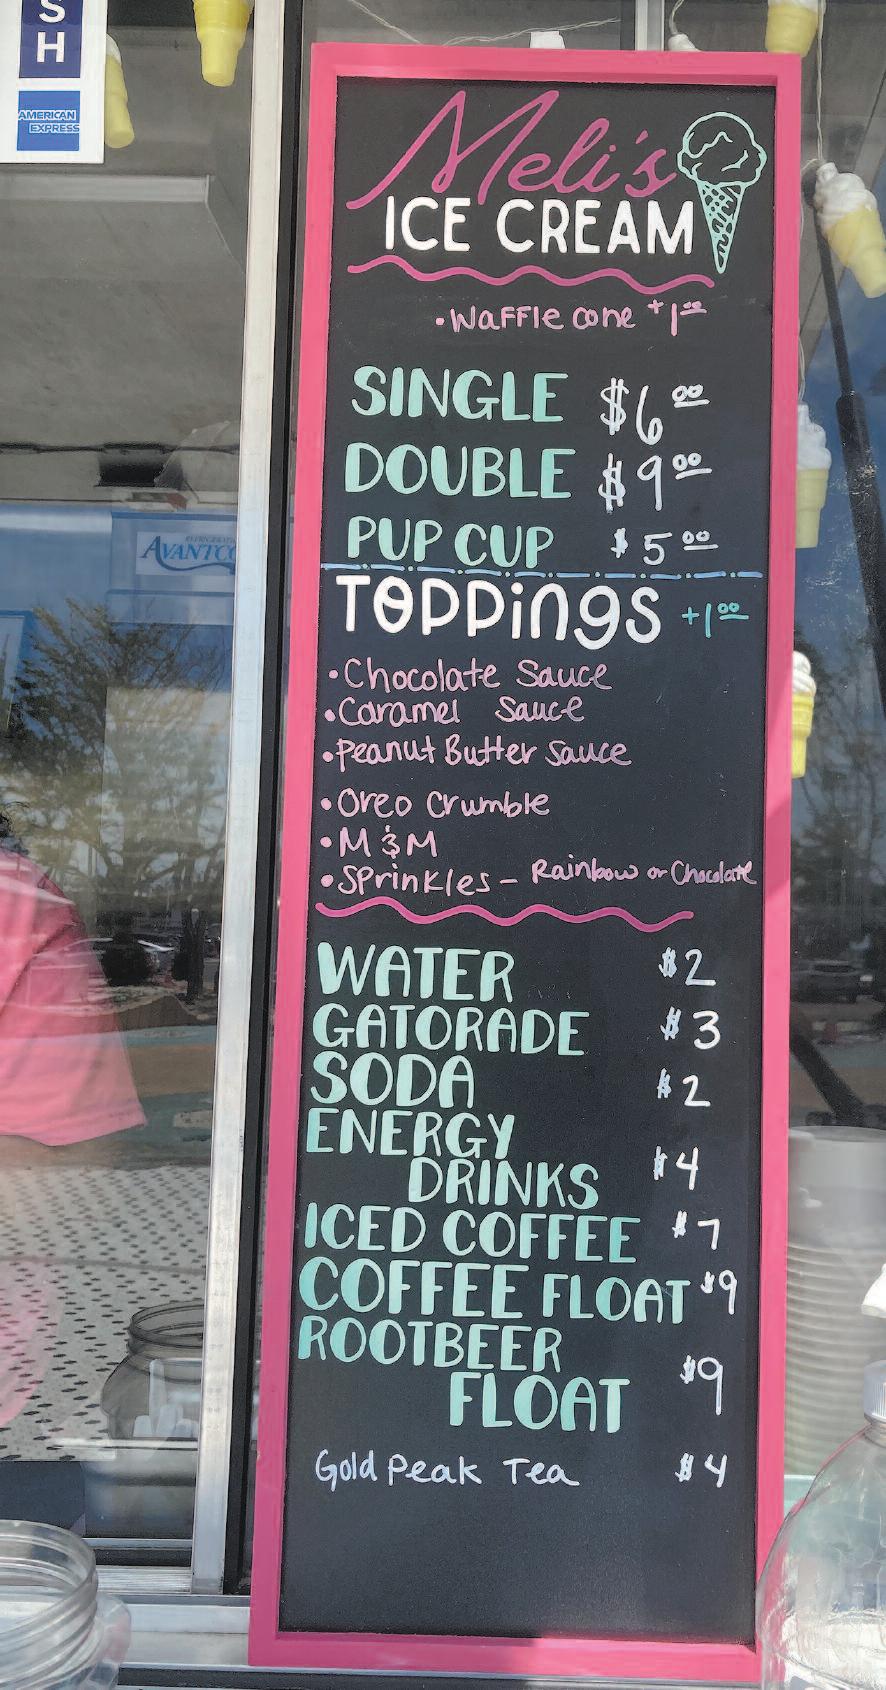 S
H
AMERICAN
EXPRESS
Meli's
ICE CREAM
•Waffle cone +1.00
SINGLE $6.00
DOUBLE $9.00
PUP CUP $5.00
TOPPINGS +1.00
•Chocolate Sauce
•Caramel Sauce
•Peanut Butter Sauce
•Oreo Crumble
•M & M
•Sprinkles - Rainbow or Chocolate
WATER $2
GATORADE $3
SODA $2
ENERGY
DRINKS $4
ICED COFFEE $7
COFFEE FLOAT $9
ROOTBEER
FLOAT $9
Gold Peak Tea $4